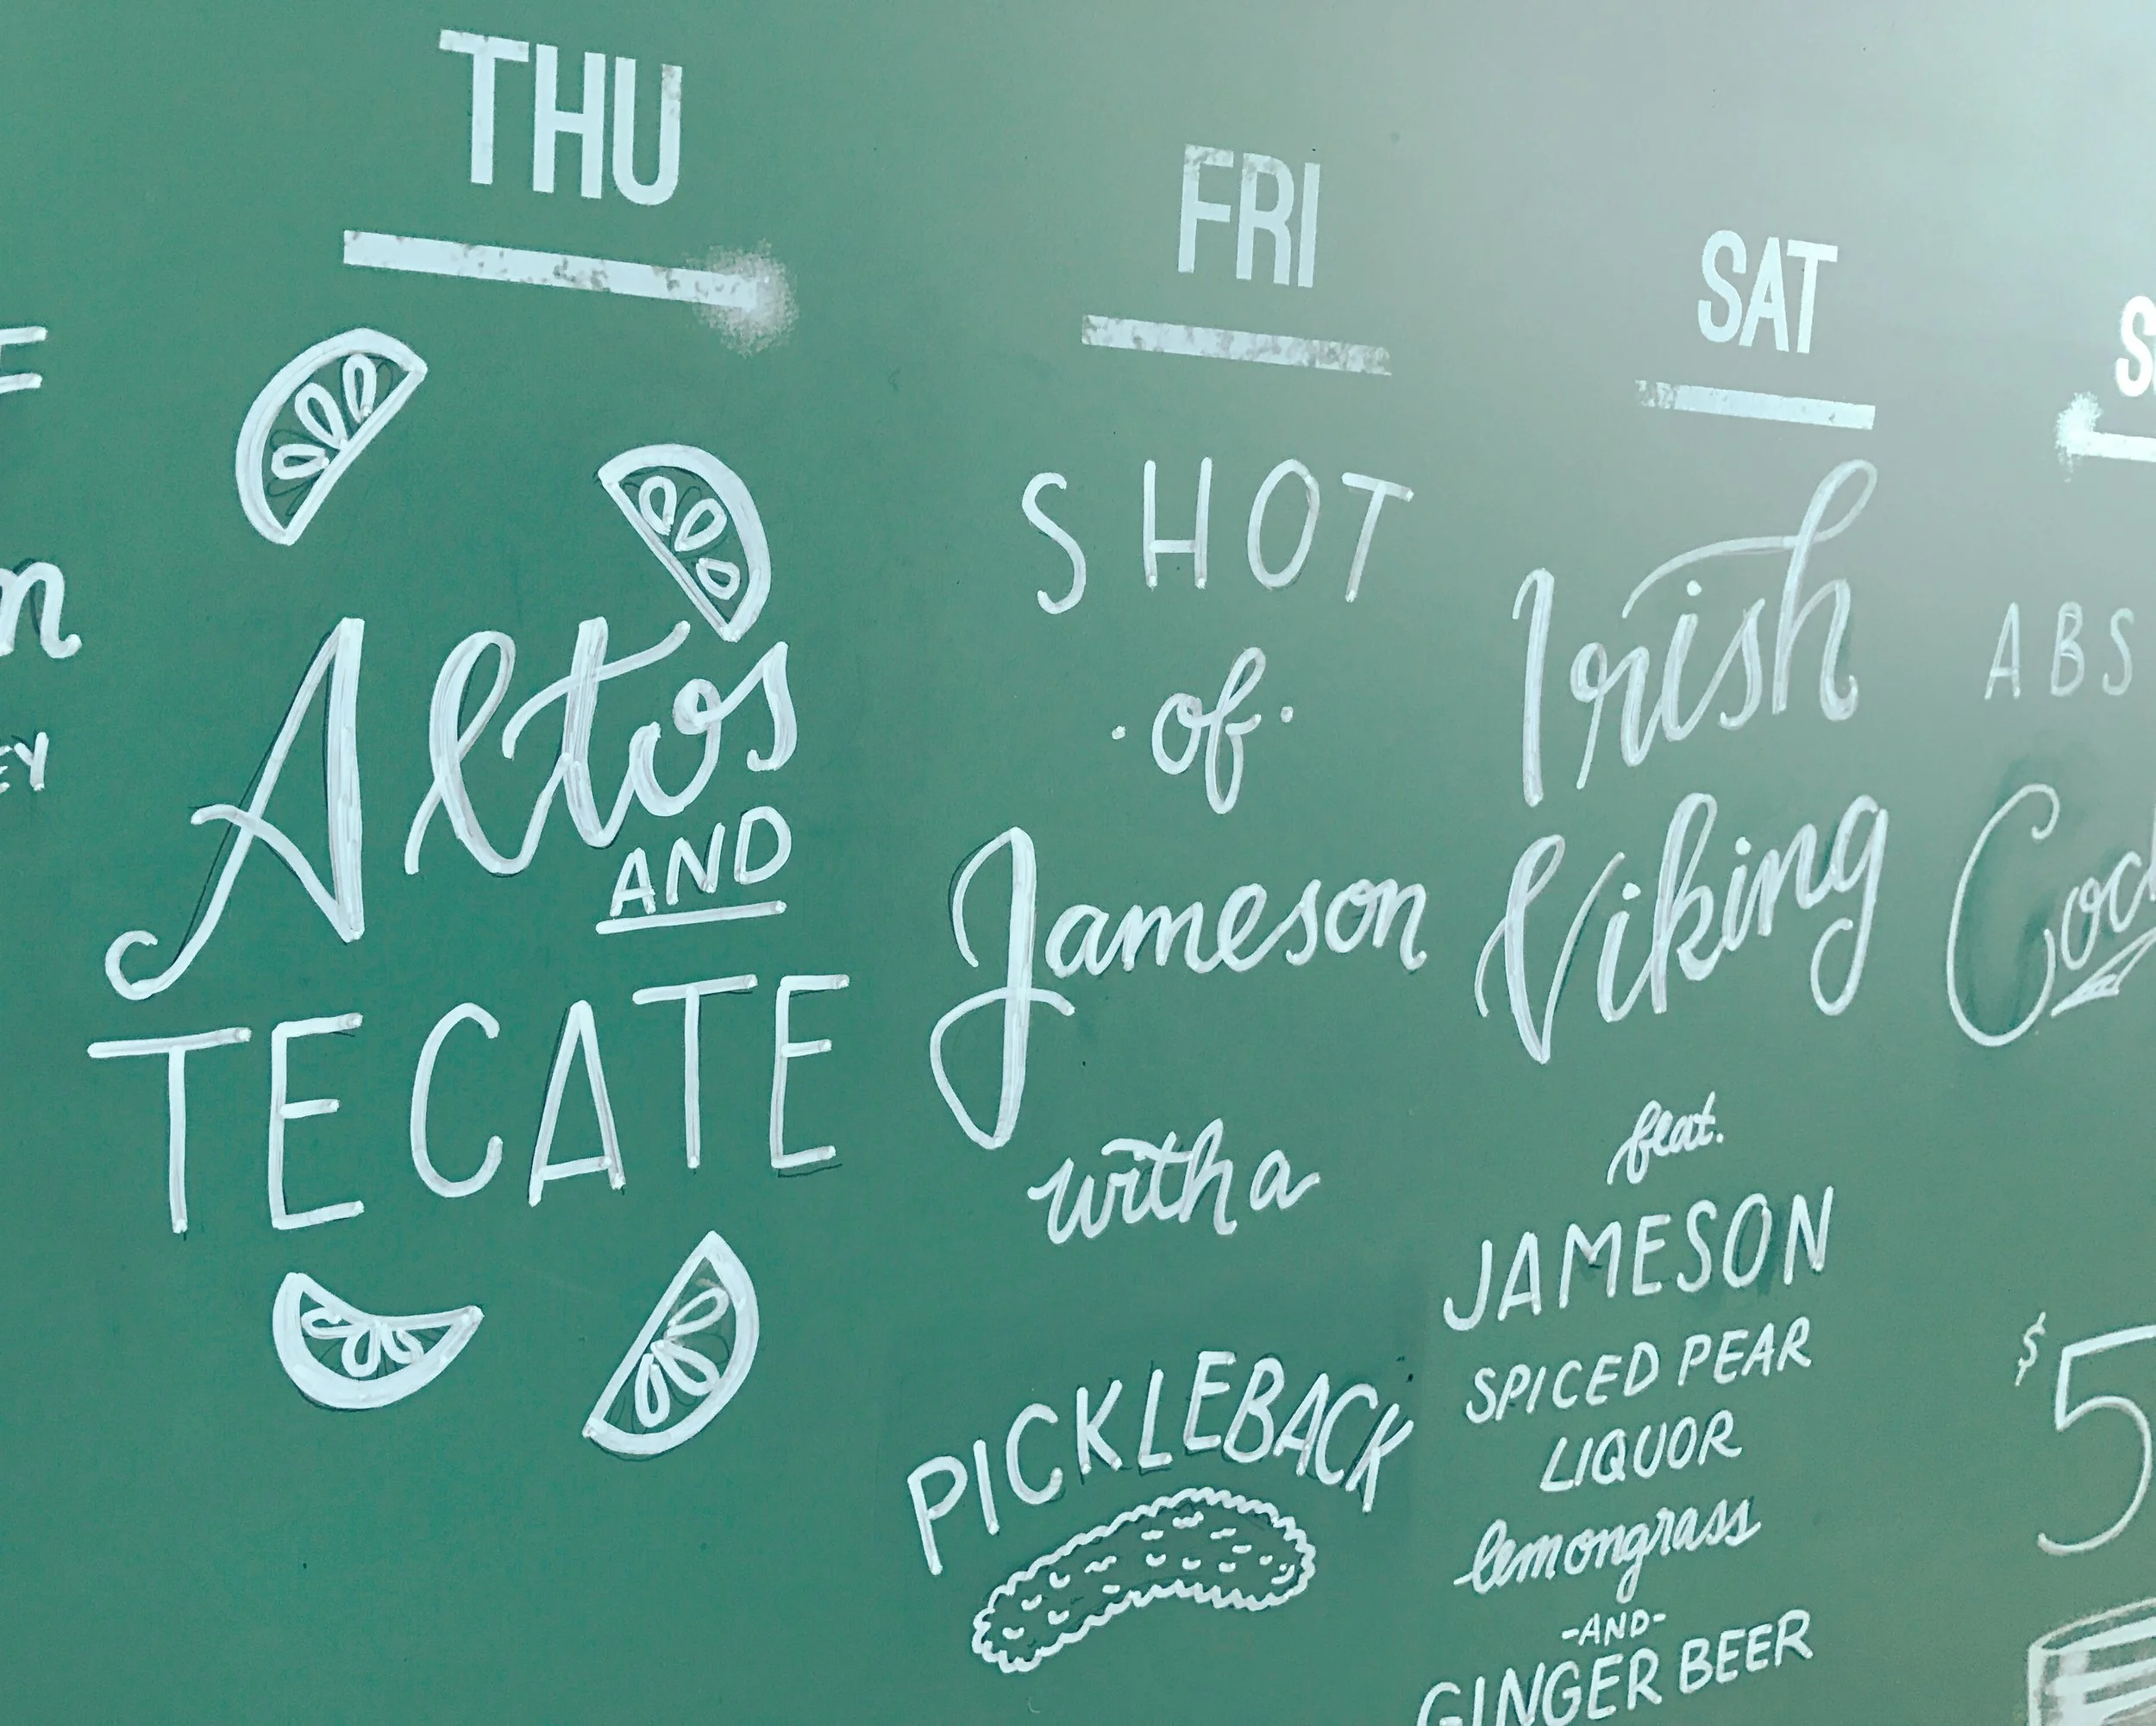 THU
Altos
AND
TECATE
FRI
SHOT
of
Jameson
with a
PICKLEBACK
SAT
Irish
Viking
feat.
JAMESON
SPICED PEAR
LIQUOR
lemongrass
-AND-
GINGER BEER
ABS
$5